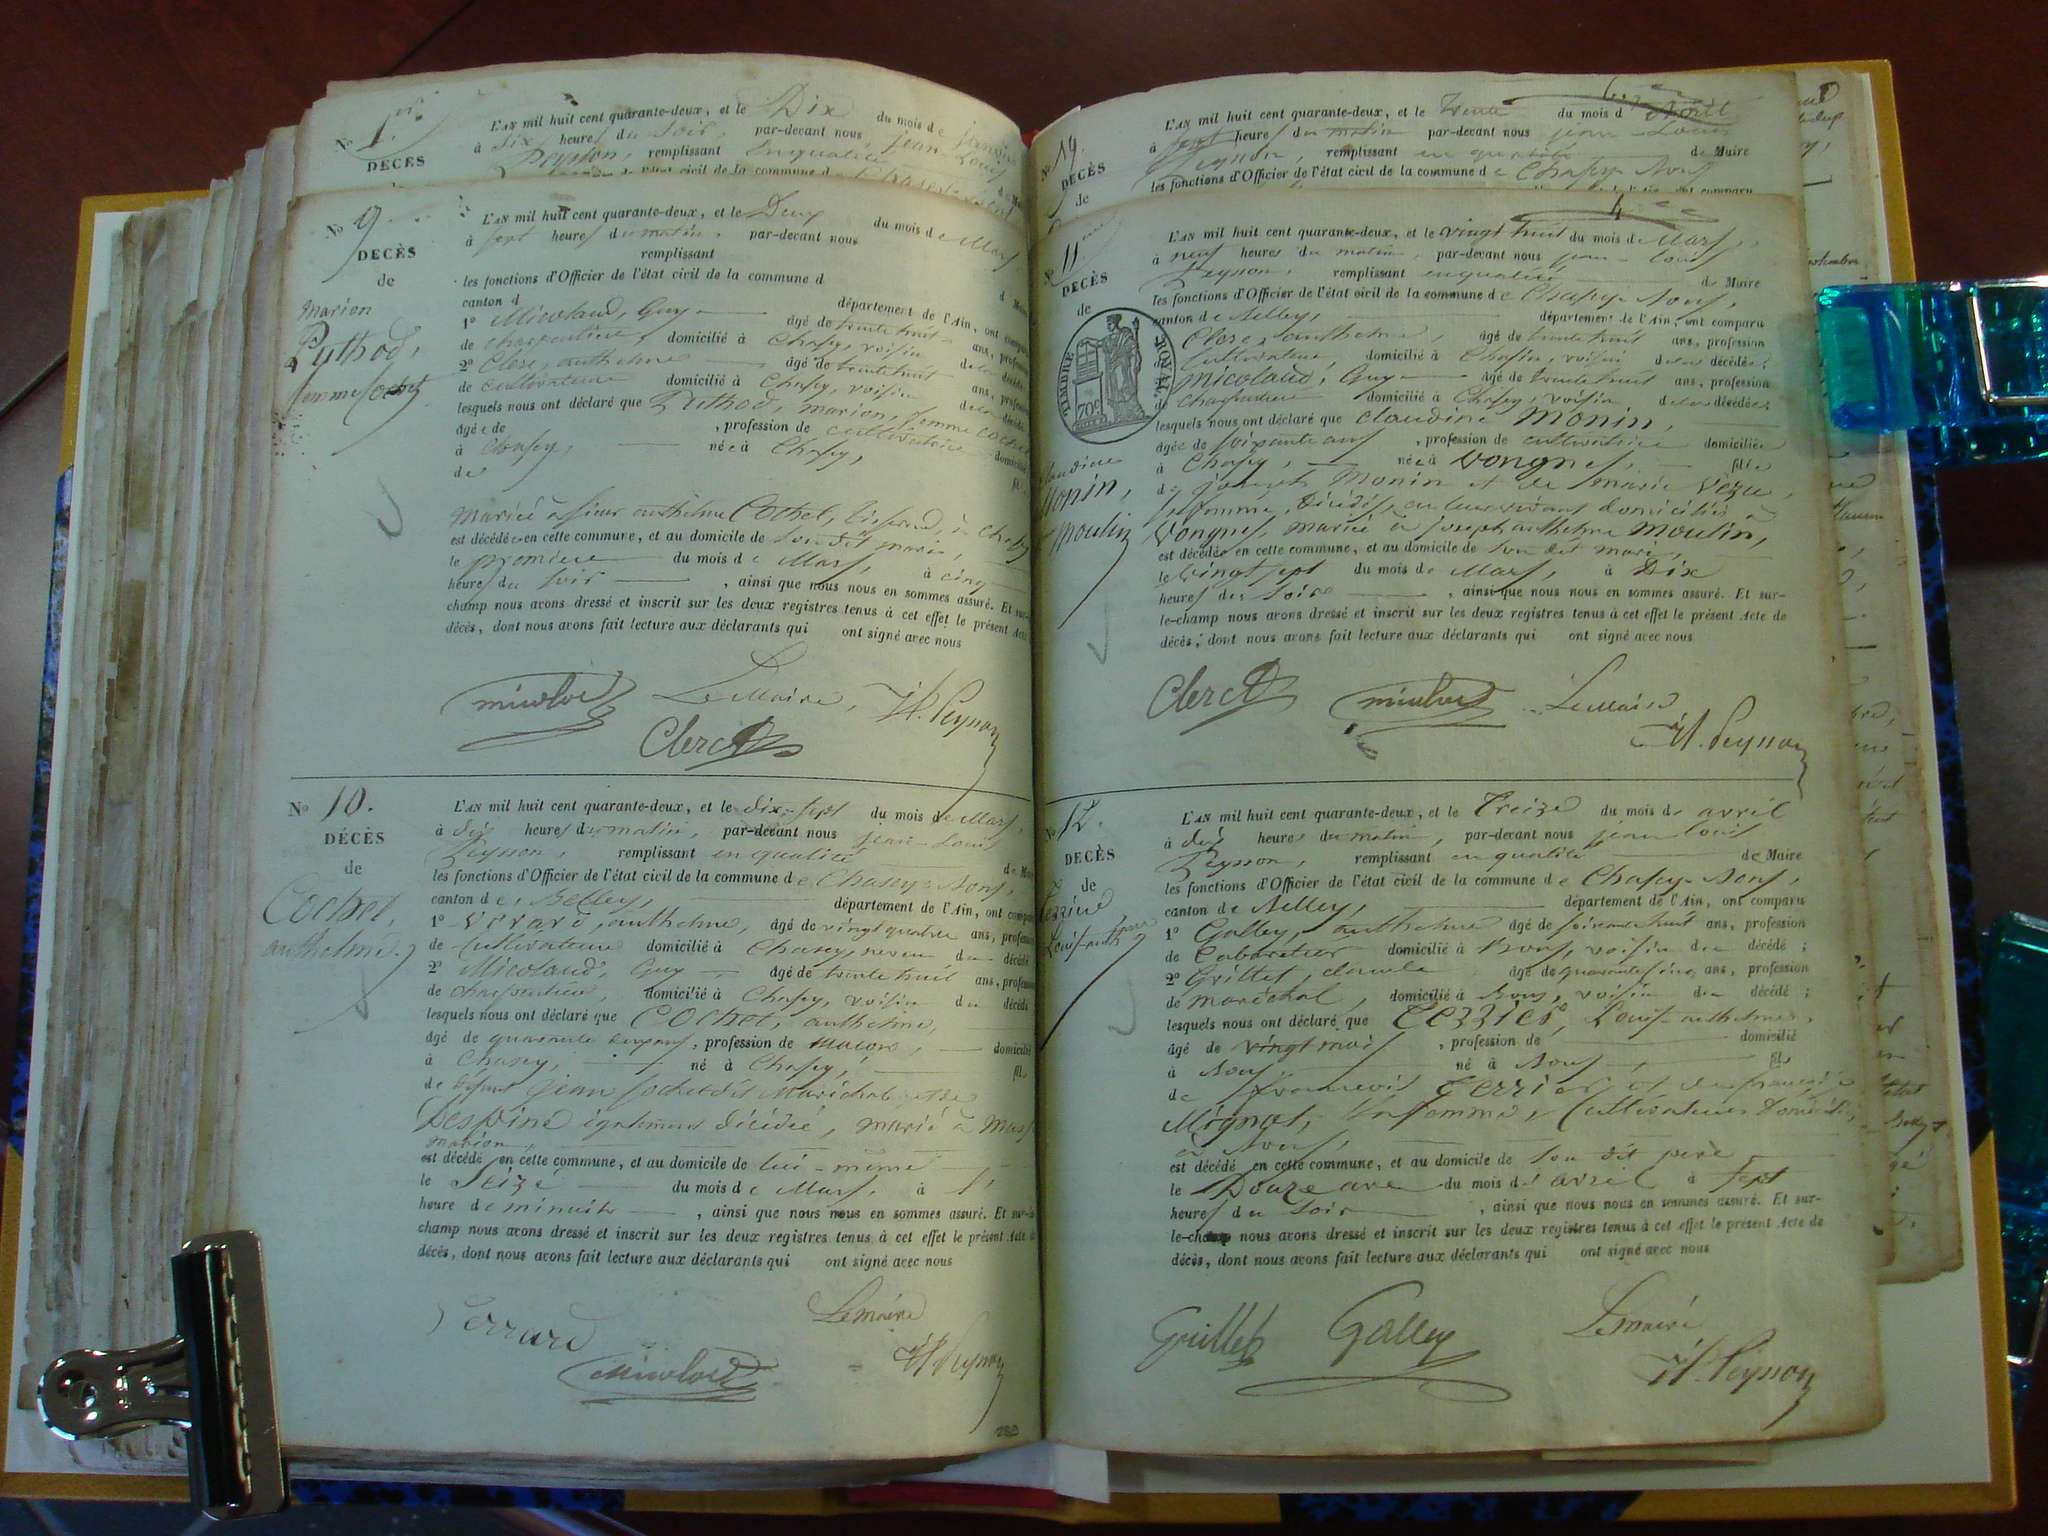 N° 1er
DECÈS
L'AN mil huit cent quarante-deux, et le Dix du mois de janvier
à Dix heures du Soir, par-devant nous jean-Louis
Peysson, remplissant en qualité
N° 9
DECÈS
de
marion
Puthod,
femme Cochet
L'AN mil huit cent quarante-deux, et le Deux du mois de Mars,
à Sept heures du matin, par-devant nous
remplissant
les fonctions d'Officier de l'état civil de la commune d
canton d département de l'Ain, ont comparu
1° Micolaud, Guy âgé de trente huit ans, profession
de charpentier, domicilié à Chasey, voisin de la décédée
2° Clerc, anthelme âgé de trente huit ans, profession
de cultivateur domicilié à Chasey, voisin de la décédée
lesquels nous ont déclaré que Puthod, marion, femme Cochet
âgée de , profession de cultivatrice domicilié
à Chasey, née à Chasey, fil
de
mariée à sieur anthelme Cochet, tisserand, à Chasey
est décédée en cette commune, et au domicile de son dit mari,
le premiere du mois de Mars, à cinq
heures du soir , ainsi que nous nous en sommes assuré. Et sur-
champ nous avons dressé et inscrit sur les deux registres tenus à cet effet le présent Acte
décès, dont nous avons fait lecture aux déclarants qui ont signé avec nous
micolaud Le Maire, J.L. Peysson
Clerc
N° 10.
DÉCÈS
de
Cochet,
anthelme
L'AN mil huit cent quarante-deux, et le dix-sept du mois de Mars,
à dix heures du matin, par-devant nous jean-Louis
Peysson, remplissant en qualité de Maire
les fonctions d'Officier de l'état civil de la commune de Chasey-Bons,
canton de Belley, département de l'Ain, ont comparu
1° Verard, anthelme, âgé de vingt quatre ans, profession
de cultivateur domicilié à Chasey, neveu du décédé
2° Micolaud, Guy âgé de trente huit ans, profession
de charpentier, domicilié à Chasey, voisin du décédé
lesquels nous ont déclaré que Cochet, anthelme,
âgé de quarante deux ans, profession de macon, domicilié
à Chasey, né à Chasey, fils
de défunt jean Cochet dit Maréchal et de
Despine également décédée, marié à
marion
est décédé en cette commune, et au domicile de lui-même
le Seize du mois de Mars, à
heure de minuit , ainsi que nous nous en sommes assuré. Et sur-le-
champ nous avons dressé et inscrit sur les deux registres tenus à cet effet le présent Acte
décès, dont nous avons fait lecture aux déclarants qui ont signé avec nous
Verrard Lemaire
micolaud J.L. Peysson
N° 19.
DECÈS
de
L'AN mil huit cent quarante-deux, et le trente du mois d'Avril
à Sept heures du matin par-devant nous jean-Louis
Peysson, remplissant en qualité de Maire
les fonctions d'Officier de l'état civil de la commune de Chasey-Bons
N° 11
DECÈS
de
TIMBRE ROYAL
70c
Claudine
Monin,
Moulin
L'AN mil huit cent quarante-deux, et le vingt huit du mois de Mars,
à neuf heures du matin, par-devant nous jean-louis
Peysson, remplissant en qualité de Maire
les fonctions d'Officier de l'état civil de la commune de Chasey-Bons,
canton de Belley, département de l'Ain, ont comparu
Clerc, anthelme, âgé de trente huit ans, profession
cultivateur, domicilié à Chasey, voisin de la décédée;
micolaud, Guy âgé de trente huit ans, profession
de charpentier domicilié à Chasey, voisin de la décédée;
lesquels nous ont déclaré que Claudine Monin,
âgée de soixante ans , profession de cultivatrice domiciliée
à Chasey, née à Vongnes, fille
de joseph Monin et de marie Vezu,
sa femme, décédés, en leur vivant domiciliés à
Vongnes, mariée à joseph anthelme Moulin,
est décédée en cette commune, et au domicile de son dit mari,
le vingt sept du mois de Mars, à Dix
heures du Soir , ainsi que nous nous en sommes assuré. Et sur-
le-champ nous avons dressé et inscrit sur les deux registres tenus à cet effet le présent Acte de
décès, dont nous avons fait lecture aux déclarants qui ont signé avec nous
Clerc micolaud Le Maire
J.L. Peysson
N° 12.
DECÈS
de
Terrier
Louis-anthelme
L'AN mil huit cent quarante-deux, et le Treize du mois de avril
à dix heures du matin, par-devant nous jean louis
Peysson, remplissant en qualité de Maire
les fonctions d'Officier de l'état civil de la commune de Chasey-Bons,
canton de Belley, département de l'Ain, ont comparu
1° Galley, anthelme âgé de soixante huit ans, profession
de Cabaretier domicilié à Bons, voisin du décédé;
2° Grillet, claude âgé de quarante cinq ans, profession
de maréchal, domicilié à Bons, voisin du décédé;
lesquels nous ont déclaré que Terrier, Louis-anthelme,
âgé de vingt mois , profession de domicilié
à Bons, né à Bons, fils
de francois Terrier et de françoise
Mignot, sa femme, Cultivateurs domiciliés
à Bons,
est décédé en cette commune, et au domicile de son dit père
le Douze du mois d'avril à Sept
heures du Soir , ainsi que nous nous en sommes assuré. Et sur-
le-champ nous avons dressé et inscrit sur les deux registres tenus à cet effet le présent Acte de
décès, dont nous avons fait lecture aux déclarants qui ont signé avec nous
Grillet Galley Lemaire
J.L. Peysson